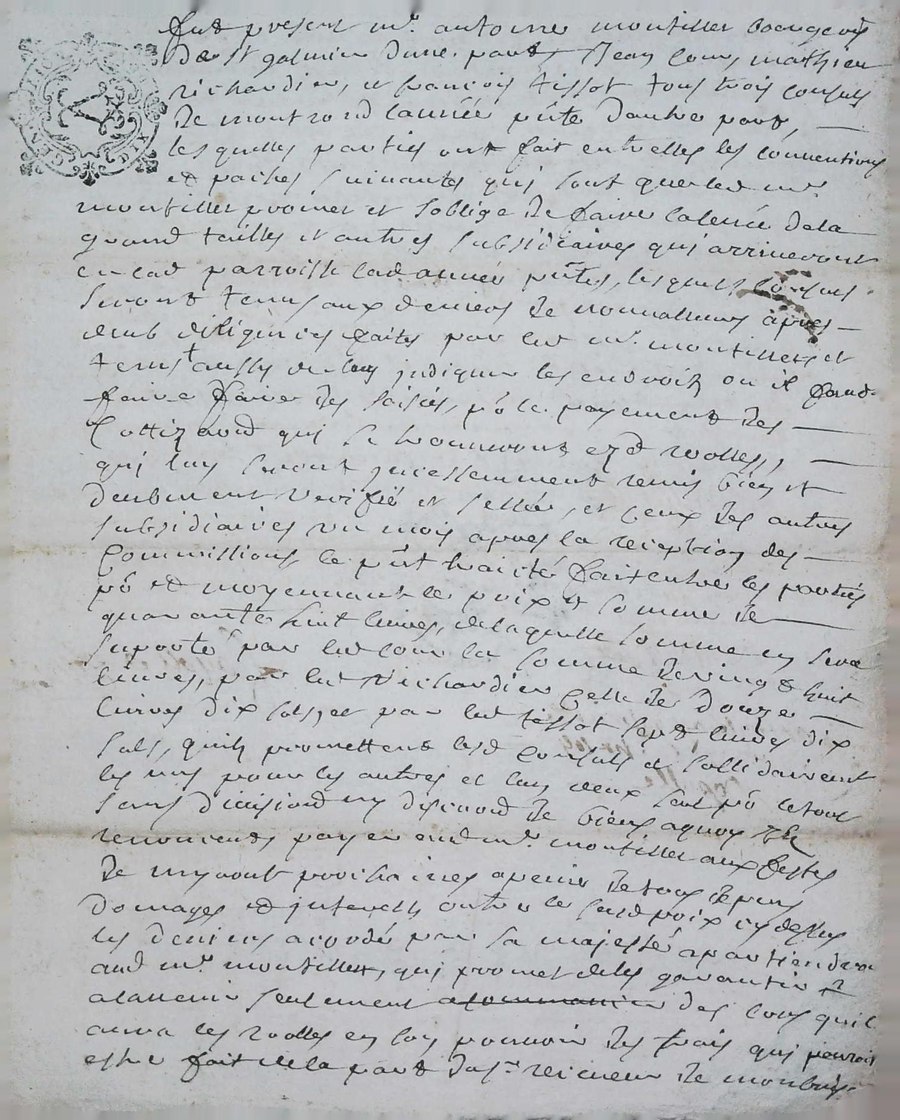 fut présent mr. antoine montillet bourgeois
de st galmier d'une part, Jean louis mathieu
richardier, et françois tissot tous trois consuls
de montrond lannée pnte dautre part,
lesquelles parties ont fait entrelles les conventions
et paches suivantes qui sont que led mr.
montillet promet et soblige de faire la levée dela
grand tailles et autres subsidiaires qui arriveront
en lad parroisse lad année pntes, lesquels consuls
seront tenus aux deniers de apres
deub diligences faites par led mr. montillet et
tenus aussy de luy indiquer les endroits ou il faud.
faire faire des saisies, po le payement des
Cottizs qui se trouveront ezd rolles,
qui luy seront incessemment remis bien et
deubment veriffié et sellée, et ceux des autres
subsidiaires un mois apres la reception des
Commissions le pnt traicté fait entre les parties
po et moyennant le prix et somme de
quarante huit livres, delaquelle somme en sera
suporté par led louis la somme de vingt huit
livres, par led Richardier celle de douze
livres dix sols, et par led tissot sept livres dix
sols, quils promettent lesd consuls et sollidairement
les uns pour les autres et luy deux seul po le tout
sans division ny discution de biens a quoy
renoncent payer aud mr. montillet aux festes
de prochaines a peine de tous depens
domages et interests outre le susd prix cy dessus
les deniers acordés par sa majesté apartiendra
aud mr. montillet, qui promet deles garentir
alavenir seulement des lors quil
aura les rolles en son pouvoir des frais qui pourroit
estre fait dela part du sr. receveur de montbrison